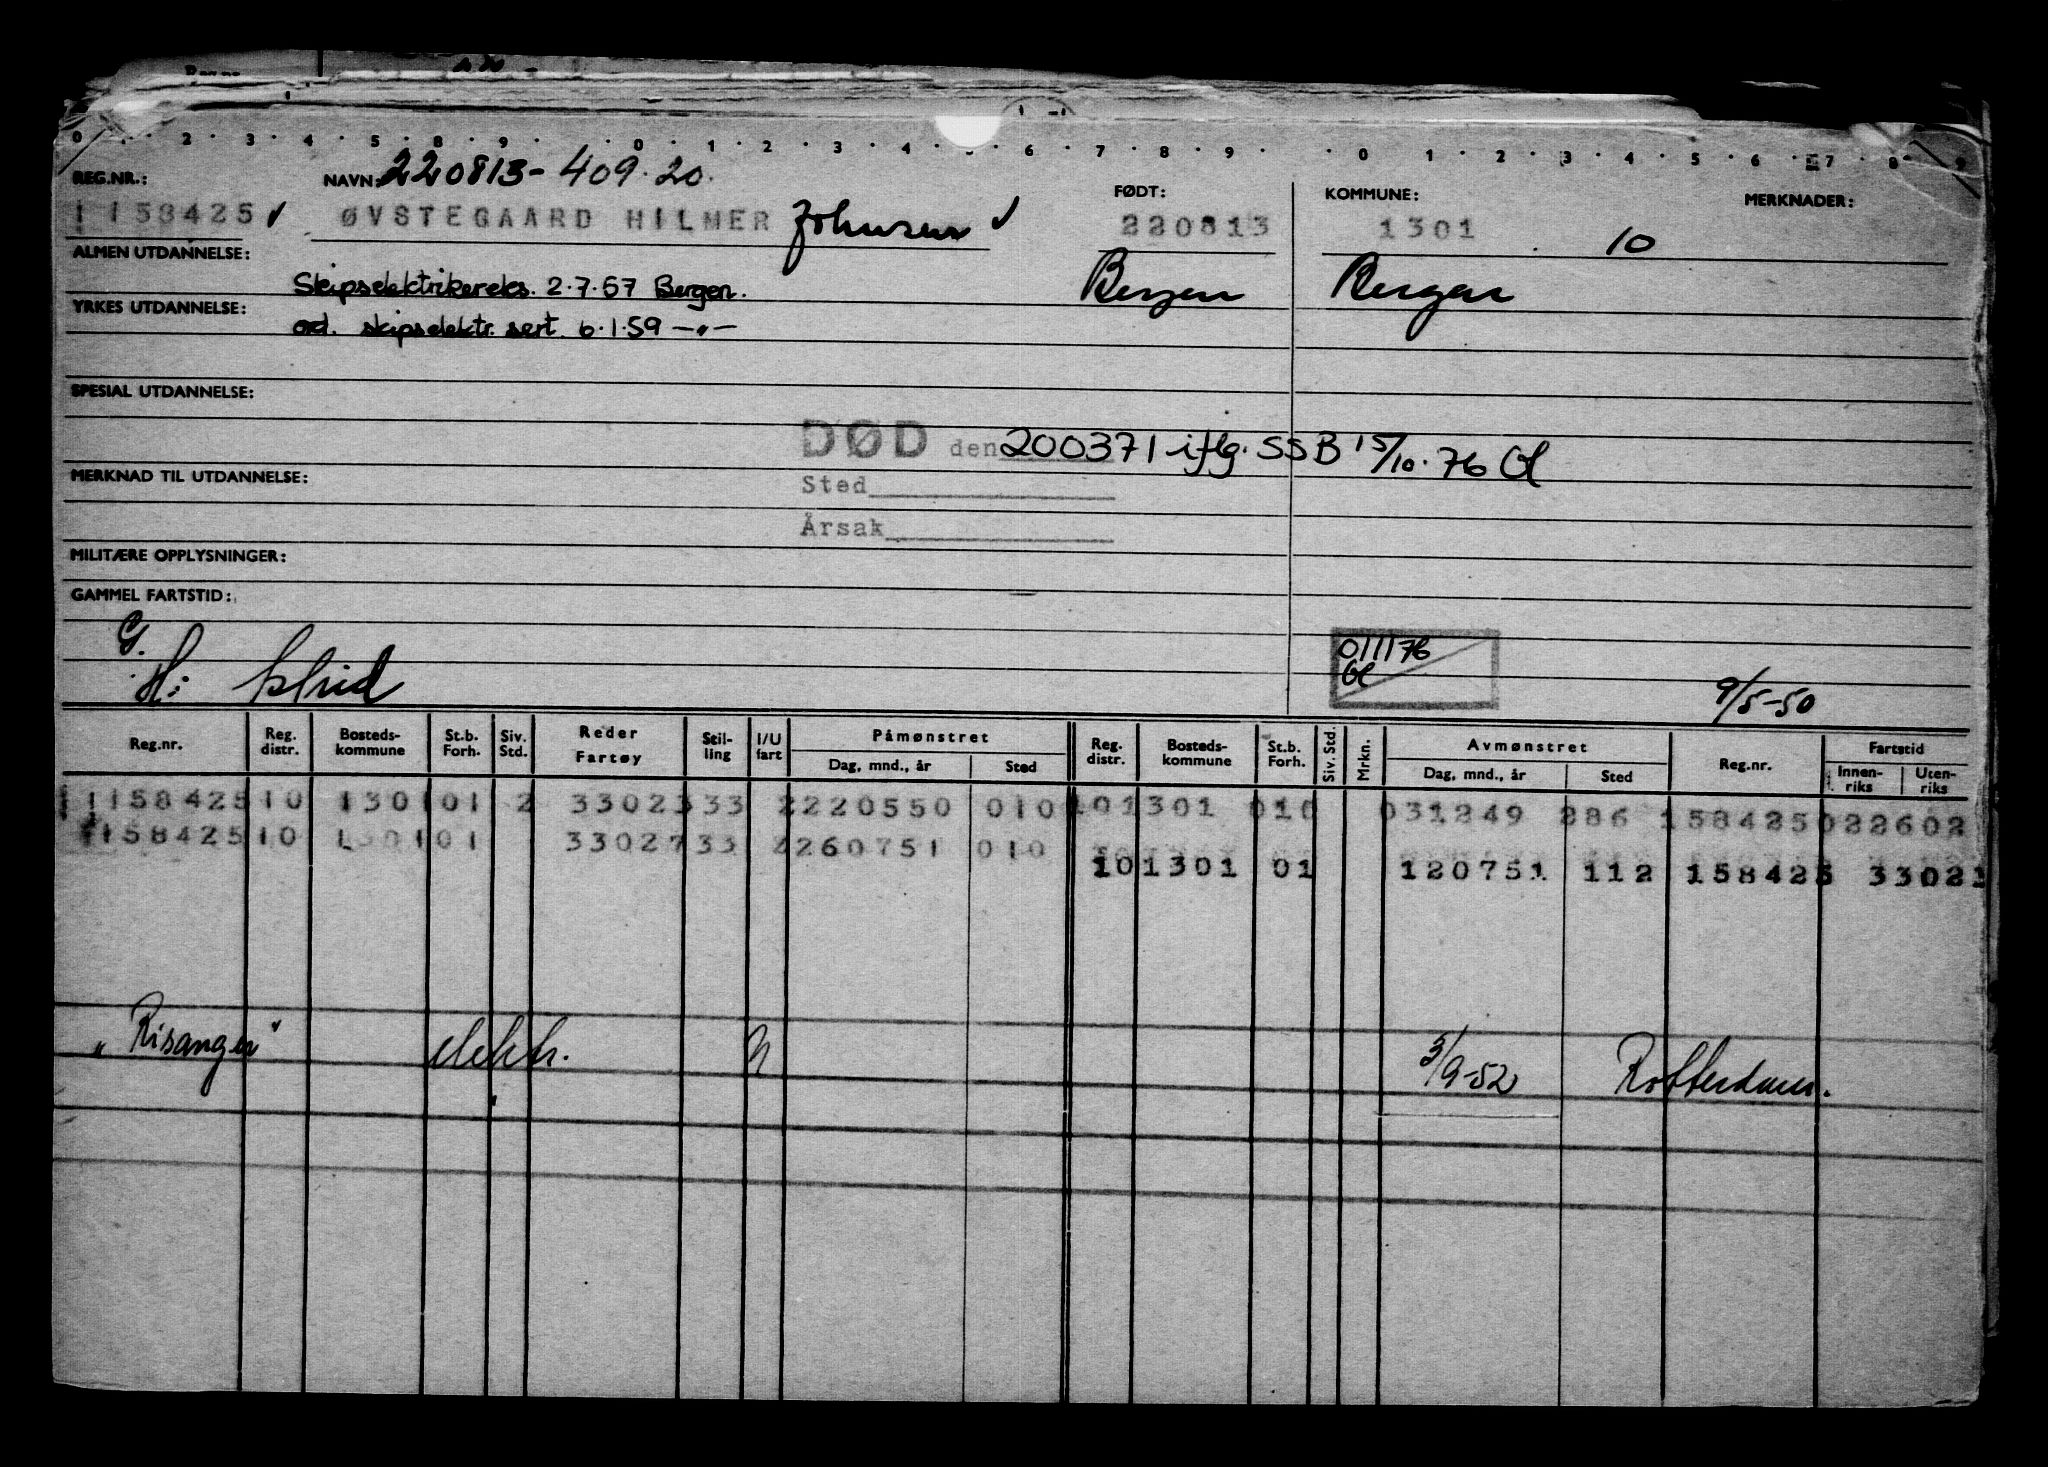 0 · · 2 · 3 · 4 · 5 · 8 · 9 · · 0 · 1 · 2 · 3 · 4 · · 6 · 7 · 8 · 9 · · 0 · 1 · 2 · 3 · 4 · 5 · 6 · 7 · 8 · 9
REG.NR.: NAVN: 220813-409.20. FØDT: KOMMUNE: MERKNADER:
1158425 ✓ ØVSTEGAARD HILMER Johnsen ✓ 220813 1301 10
ALMEN UTDANNELSE: Bergen Bergen
Skipselektrikereks. 2.7.57 Bergen.
YRKES UTDANNELSE:
ord. skipselektr. sert. 6.1.59 —"—
SPESIAL UTDANNELSE:
DØD den 200371 iflg. SSB 15/10.76
MERKNAD TIL UTDANNELSE: Sted
Årsak
MILITÆRE OPPLYSNINGER:
GAMMEL FARTSTID:
G.
H: 011176
9/5-50
Reg.nr. Reg. distr. Bosteds-kommune St.b. Forh. Siv. Std. Reder Fartøy Stil-ling I/U fart Påmønstret Dag, mnd., år Sted Reg. distr. Bosteds-kommune St.b. Forh. Siv. Std. Mrkn. Avmønstret Dag, mnd., år Sted Reg.nr. Fartstid Innen-riks Uten-riks
1158425 10 1301 01 2 33023 33 2 220550 010 101301 010 031249 286 158425 022602
1158425 10 1301 01 33027 33 2 260751 010
101301 01 120751 112 158425 33021
"Risanger" elektr. 3/9-52 Rotterdam.